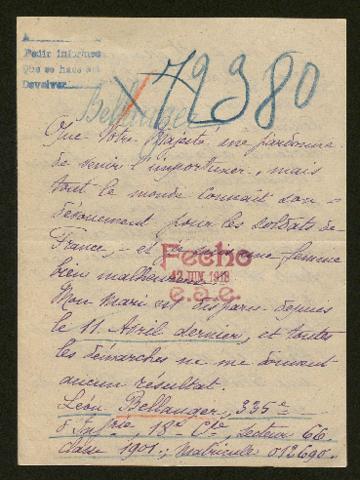 A
Pedir informes
Que se hace así
Devolver
72380
Bellanger
Que Votre Majesté me pardonne
de venir l'importuner, mais
tout le monde connait son
dévouement pour les soldats de
France, et je suis une femme
bien malheureuse
Fecho
12 JUN. 1918
e.a.e.
Mon Mari est disparu depuis
le 11 Avril dernier, et toutes
les démarches ne me donnent
aucun résultat.
Léon Bellanger, 335e
d'Infrie, 18e Cie, Secteur 66
classe 1901, Matricule 012690.